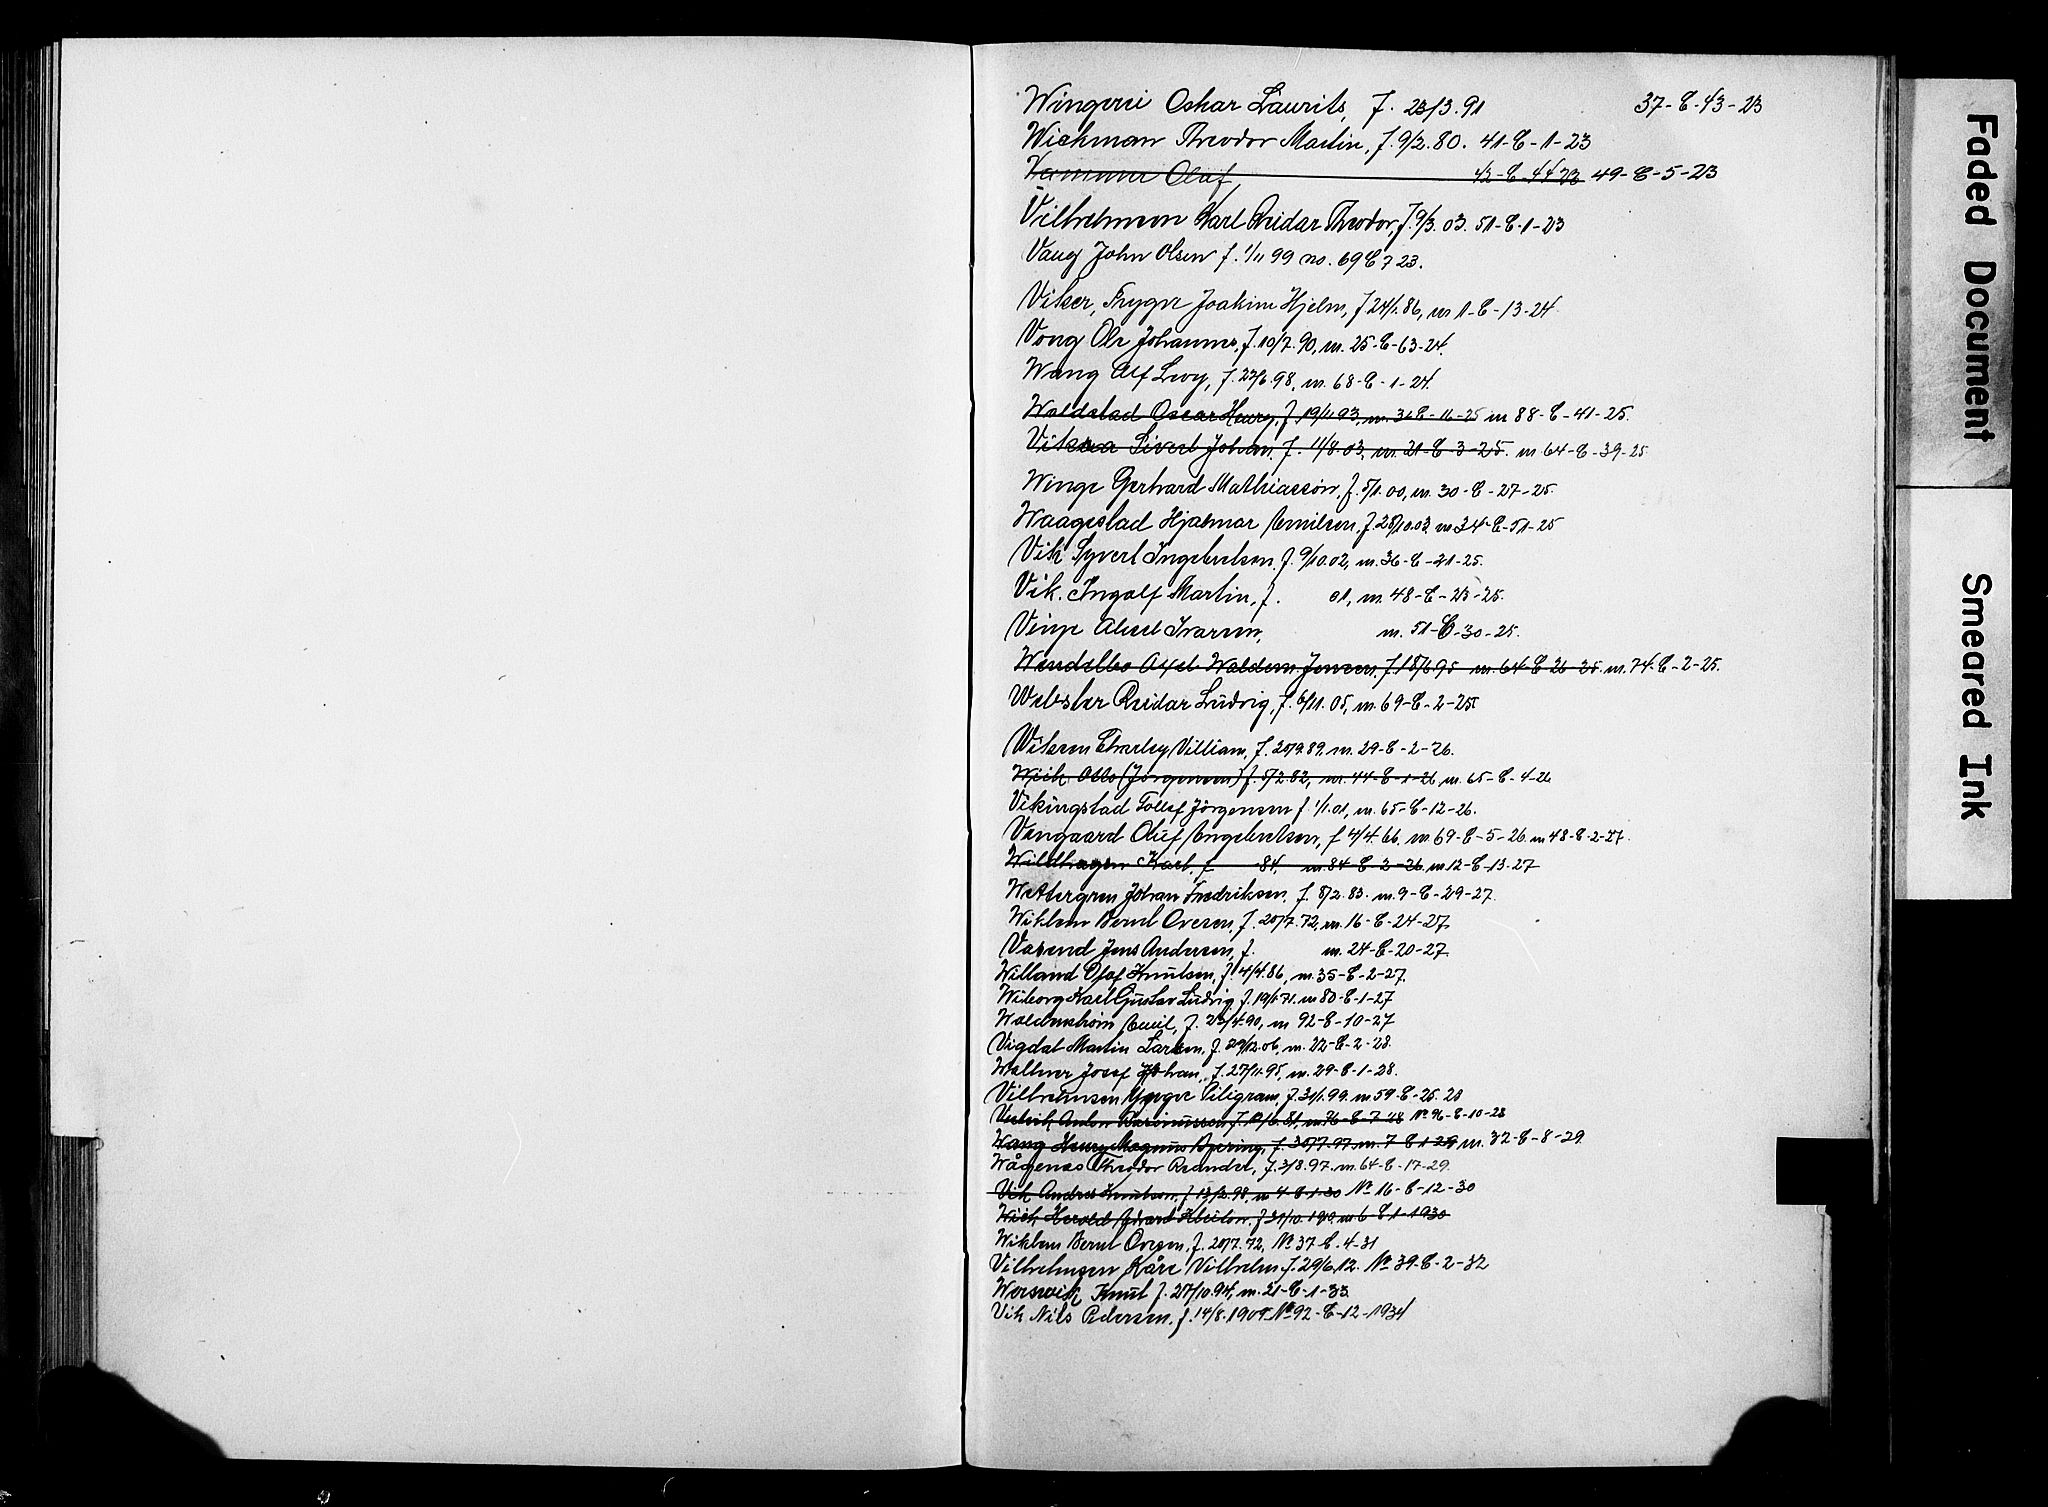 Oskar Laurits, f. 23/3.91 37-E-43-23
Wickman Theodor Martin, f. 9/2.80. 41-E-1-23
Olaf, 49-E-5-23
Vilhelmson Karl Reidar Theodor, f. 9/3.03. 51-E-1-23
Vang John Olsen f. 1/11 99 no. 69 E 7 23.
Viker, Trygve Joakim Hjelm, f 24/1.86, m 1-E-13-24
Vong Ole Johannes, f. 10/7.90, m. 25-E-63-24.
Wang Alf Levy, f. 22/6.98, m. 68-E-1-24.
Waldstad Oscar Henry, f 19/11 93, m. 88-E-41-25.
Sivert Johan, f. 11/8.03, m. 21-E-3-25. m 64-E-39-25
Winge Gerhard Mathiassön, f. 5/1.00, m. 30-E-27-25.
Waagestad Hjalmar Emilsen, f. 28/10.03 m 34-E-51-25
Vik Syvert Ingebretsen, f. 9/10.02, m. 36-E-41-25.
Vik. Ingolf Martin, f. 01, m. 48-E-23-25.
Vinje Aksel Ivarsen, m. 51-E-30-25.
Wendelbo Axel Waldem. Jensen, m. 64-E-26-25. m. 74-E-2-25.
Webster Reidar Ludvig, f. 6/11.05, m. 69-E-2-25.
Wilson Charley Villiam, f. 20/9.89, m. 29-E-2-26.
Wiik, Otto (Jörgensen) f. 5/2.82, m. 44-E-1-26, m. 65-E-4-26
Vikingstad Tollef Jörgensen f 1/1.01, m. 65-E-12-26.
Vangaard Oluf Engebretsen, f 4/4.66, m. 69-E-5-26 m 48-E-2-27.
Wildhagen Karl, f 84, m. 84-E-2-26 m 12-E-13-27
Wettergren Johan Fredriksen, f. 8/2.83. m. 9-E-29-27.
Wiklem Bernt Ovesen, f. 20/7.72, m. 16-E-24-27.
Jens Andersen, f. m. 24-E-20-27.
Willand Olaf Knutsen, f. 4/4.86, m. 35-E-2-27.
Wiborg Karl Gustav Ludvig f. 19/1.71. m 80-E-1-27
Waldenström Emil, f. 23/4.90, m 92-E-10-27
Vigdal Martin Larsen, f. 29/12.06, m. 22-E-2-28.
Wallner Josef Johan, f. 27/11.95, m. 29-E-1-28.
Vilhelmsen Yngve Piligram, f. 31/1.99. m 59-E-25.28
Anton Rasmussen f. m. 76-E-7-28 № 96-E-10-28
Wang Henry Magnus f. 30/7.97, m. 7-E-1-29 m. 32-E-8-29
Wågenes Theodor f. 3/8.97. m. 64-E-17-29.
Vik Andreas Knutsen, f 13/2.98, m 4-E-1-30 № 16-E-12-30
Wiik Harald Edvard f 31/10. m 6-E1-1930
Wiklem Bernt Ovesen, f. 20/7.72, № 37-E-4-31
Vilhelmsen Kåre Vilhelm f. 29/6.12. № 39-E-2-32
Worswik Knut f. 27/10.94, m. 21-E-1-33
Vik Nils Pedersen, f. 14/8.1905 № 92-E-12-1934
Faded Document
Smeared Ink